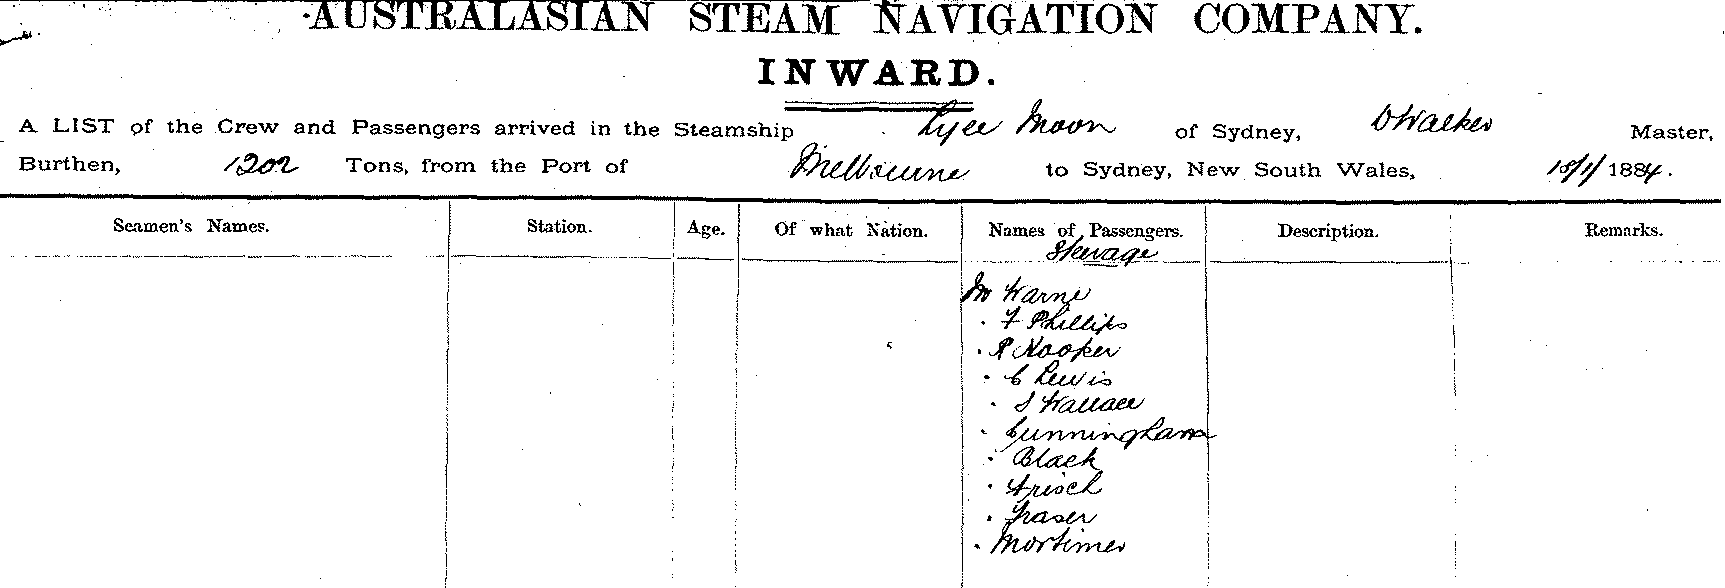 AUSTRALASIAN STEAM NAVIGATION COMPANY.
INWARD.
A LIST of the Crew and Passengers arrived in the Steamship Lyee Moon of Sydney, D Walker Master,
Burthen, 1202 Tons, from the Port of Melbourne to Sydney, New South Wales, 18/1/1884.
Seamen's Names. Station. Age. Of what Nation. Names of Passengers. Description. Remarks.
Steerage
Mr Warne
. F Phillips
. R Hooper
. C Lewis
. S Wallace
. Cunningham
. Black
. Frisch
. Fraser
. Mortimer